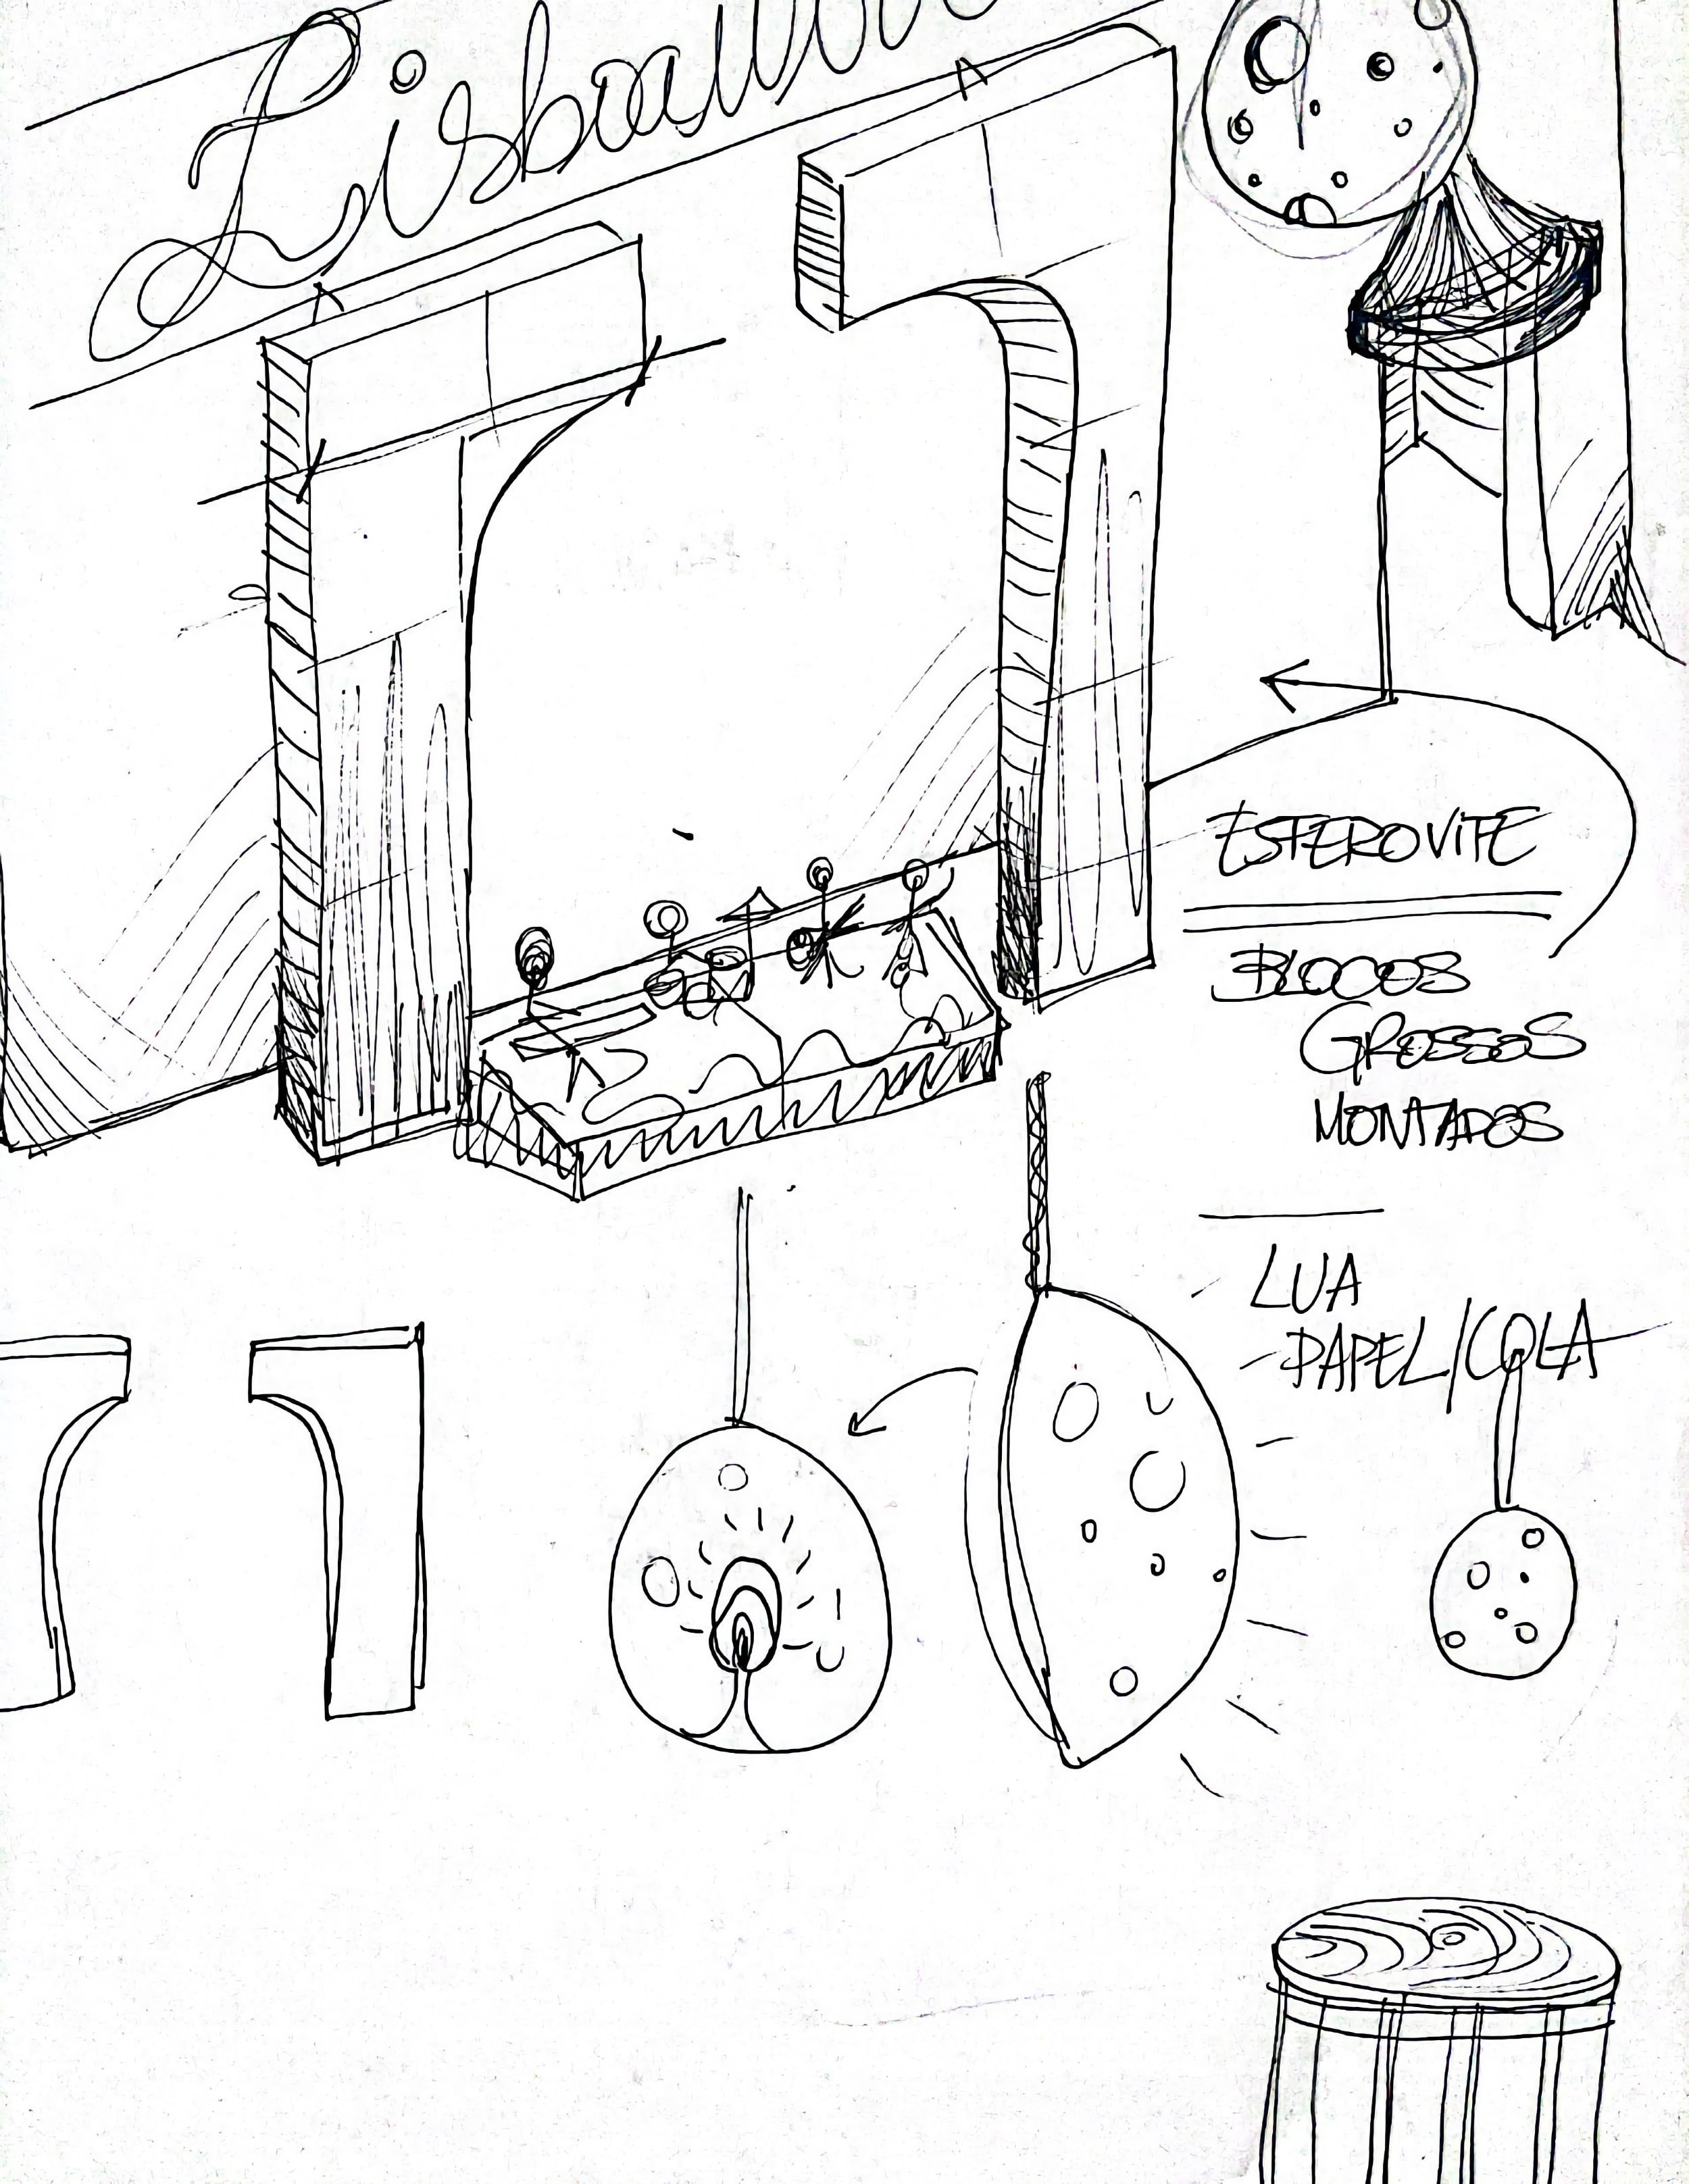 Lisboa
ESFEROVITE
BLOCOS
GROSSOS
MONTADOS
LUA
- PAPEL/COLA